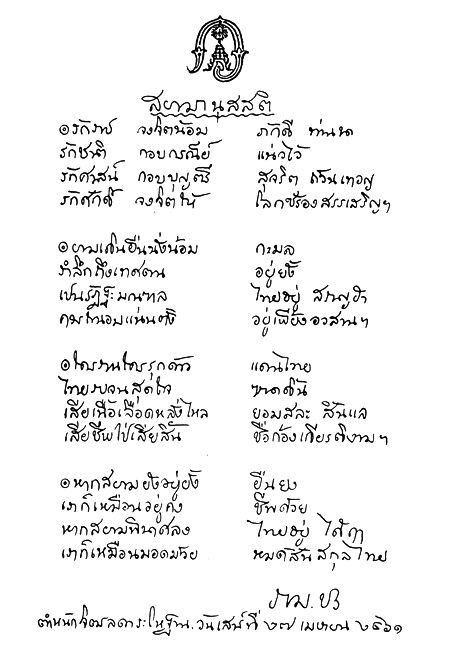 สยามานุสสติ
๏ รักราช จงจิตน้อม ภักดี ท่านนา
รักชาติ กอบกรณีย์ แน่วไว้
รักศาสน์ กอบบุญตรี สุจริต ถ้วนเทอญ
รักศักดิ์ จงจิตให้ โลกซร้องสรรเสริญฯ
๏ ยามเดินยืนนั่งน้อม กะมล
รำลึกถึงเทศตน อยู่ยั้ง
เปนรัฎฐะมณฑล ไทยอยู่ สราญฮา
ควรถนอมแน่นตั้ง อยู่เพี้ยงอวสานฯ
๏ ใครรานใครรุกด้าว แดนไทย
ไทยรบจนสุดใจ ขาดดิ้น
เสียเนื้อเลือดหลั่งไหล ยอมสละ สิ้นแล
เสียชีพไป่เสียสิ้น ชื่อก้องเกียรติงามฯ
๏ หากสยามยังอยู่ยั้ง ยืนยง
เราก็เหมือนอยู่คง ชีพด้วย
หากสยามพินาศลง ไทยอยู่ ได้ฤา
เราก็เหมือนมอดม้วย หมดสิ้นสกุลไทย
ราม.ปร
ตำหนักจิตรลดารโหฐาน. วันเสาร์ที่ ๒๗ เมษายน ๒๔๖๑